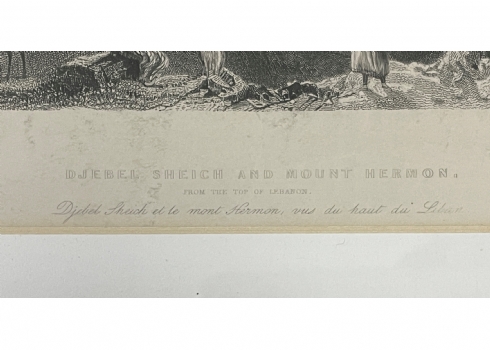 DJEBEL SHEICH AND MOUNT HERMON,
FROM THE TOP OF LEBANON.
Djebel Sheich et le mont Hermon, vus du haut du Liban